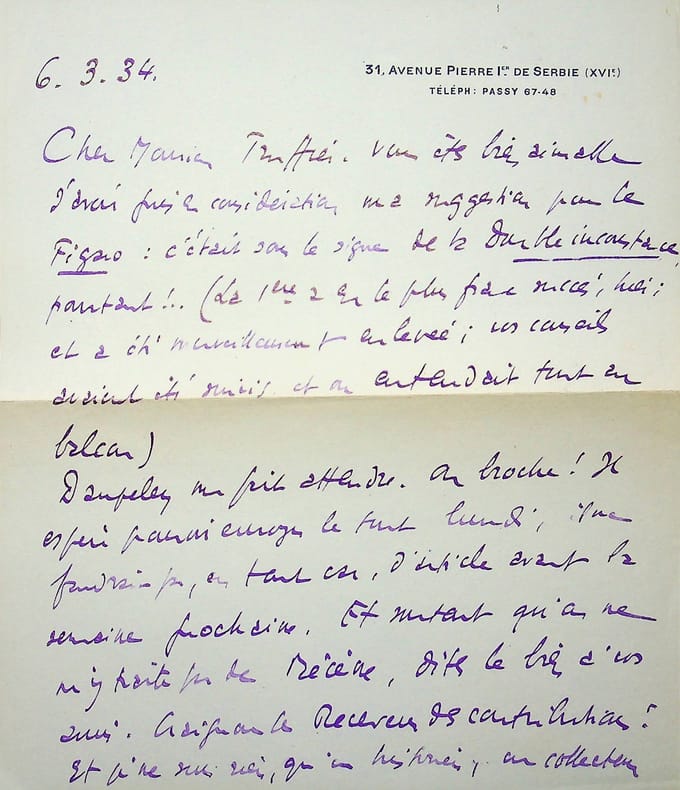 6. 3. 34.
31, AVENUE PIERRE Iᴱᴿ DE SERBIE (XVIᵉ)
TÉLÉPH : PASSY 67-48
Cher Monsieur Truffier. Vous êtes bien aimable
d'avoir pris en considération ma suggestion pour le
Figaro : c'était sous le signe de la Double inconstance,
pourtant !.. (La 1ère a eu le plus franc succès, hier ;
et a été merveilleusement enlevée ; vos conseils
avaient été suivis et on entendait tout au
balcon)
Daupeley me fait attendre. On broche ! Je
espère pouvoir envoyer le tout lundi, il ne
faudrait pas, en tout cas, d'article avant la
semaine prochaine. Et surtant qu'on ne
m'y traite pas de Mécène, dites le bien à vos
amis. Craignons les Receveurs des contributions !
Et je ne suis rien, qu'un historien, un collecteur